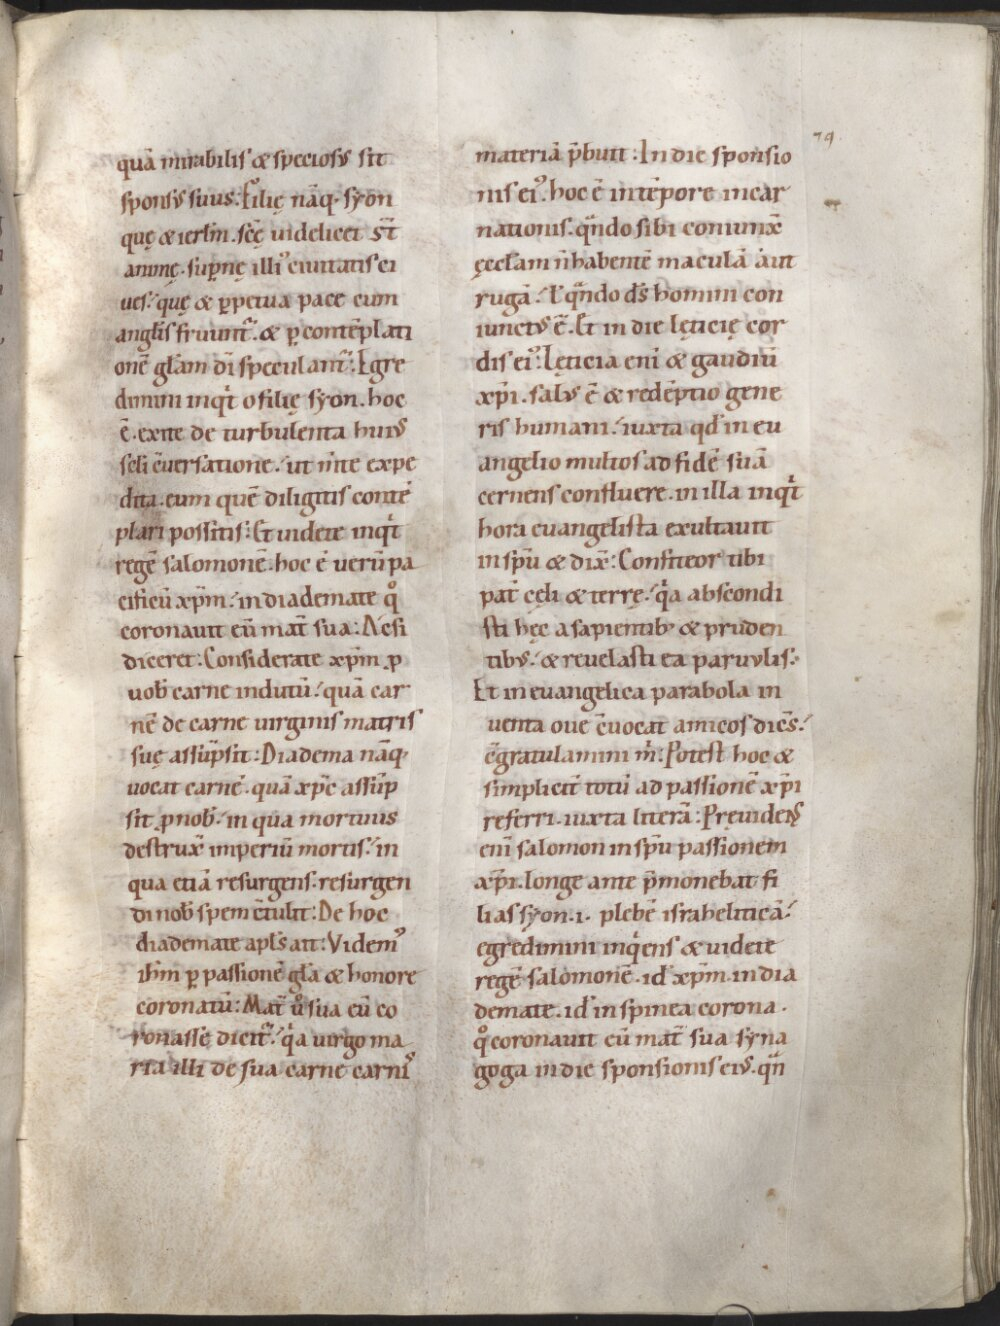 74
quā mirabilis & speciosꝰ sit
sponsꝰ suus: Filię nāq· syon
quę & ierłm. scę̄ videlicet s̄t
animę. sup̄nę illiꝰ ciuitatis ci
ues: quę & ꝑpetua pace cum
anglis fruunt᷑. & ꝑ contēplati
onē glam̄ dī speculant᷑: Egre
dimini inqͥt o filię syon. hoc
ē. exite de turbulenta huiꝰ
scl̄i cōuersatione. ut m̄te expe
dita. eum quē diligitis contē
plari possitis: Et uidete inqͥt
regē salomonē. hoc ē uerū pa
cificū xp̄m. in diademate qͦ
coronauit eū mat̄ sua: Ac si
diceret: Considerate xp̄m ꝓ
uob̄ carne indutū. quā car
nē de carne uirginis matris
suę assūpsit: Diadema nāq·
uocat carnē. quā xp̄c assūp
sit ꝓ nob̄. in qua mortuus
destrux̄ imperiū mortis. in
qua etiā resurgens. resurgen
di nob̄ spem ↄ̄tulit: De hoc
diademate apl̄s ait: Videmꝰ
ih̄m ꝑ passionē gl̄a & honore
coronatū: Mat̄ uͦ sua eū co
ronasse dicit᷑. qͥa uirgo ma
ria illi de sua carne carniſ
materiā p̄buit: In die sponsio
nis eiꝰ. hoc ē in tēpore incar
nationis. qn̄do sibi coniunx̄
ęcclam n̄ habentē maculā aut
rugā. l̓ qn̄do ds̄ homini con
iunctꝰ ē. Et in die lęticię cor
dis eiꝰ: Lęticia enī & gaudiū
xp̄i. salꝰ ē & redēptio gene
ris humani. iuxta qd̓ in eu
angelio multos ad fidē suā
cernens confluere. in illa inqͥt
hora euangelista exultauit
in spū & dix̄: Confiteor tibi
pat̄ cęli & terrę. qͥa abscondi
sti hęc a sapientibꝰ & pruden
tibꝰ. & reuelasti ea paruulis:
Et in euangelica parabola in
uenta oue ↄ̄uocat amicos dicēs.
ↄ̄gratulamini m̄: Potest hoc &
simplicit̄ totū ad passionē xp̄i
referri. iuxta literā: Pręuidens
enī salomon in spū passionem
xp̄i. longe ante p̄monebat fi
lias syon .i. plebē israheliticā.
egredimini inqͥens & uidete
regē salomonē. id̓ xp̄m. in dia
demate. id̓ in spinea corona.
qͦ coronauit eū mat̄ sua syna
goga in die sponsionis eiꝰ. qn̄